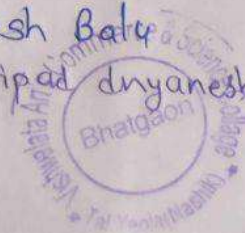 sh Balu
ipad dnyanesh
Vishwalata Art Commerce & Science College
Bhatgaon
Tal Yeola (Nashik)